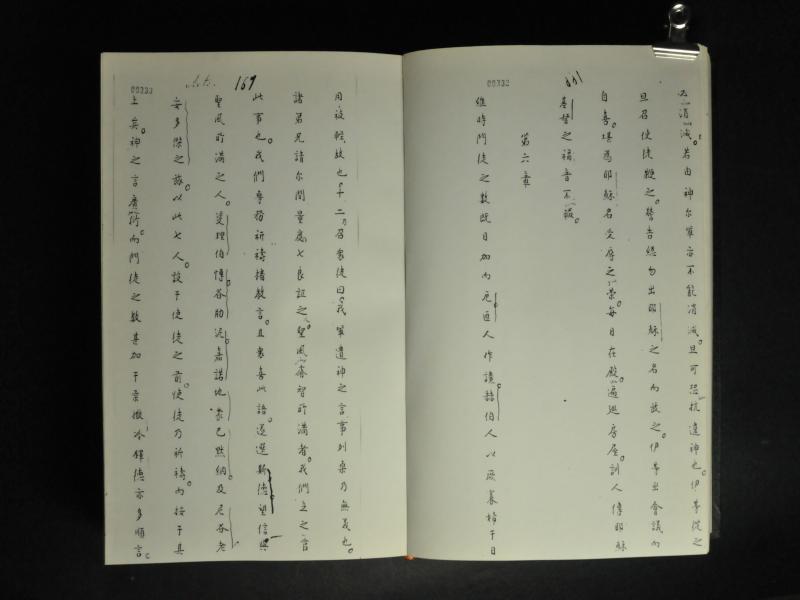 必消滅。若由神尔軍亦不能消滅。且可恐抗違神也。伊等從之
且召使徒鞭之。警告總勿出耶穌之名而放之。伊等出會議而
自喜。堪爲耶穌名受辱之榮。每日在殿。遍廻房屋。訓人傳耶穌
基督之福音不
第六章
維時門徒之數既日加而厄匝人作讀赫伯人以厥寡婦于日
00333
Acts. 169
用被輕故也。十二乃召衆徒曰。我軍遺神之言事列桌乃無義也。
諸弟兄請尔間量處七良証之聖風睿智所滿者。我們立之官
此事也。我們專務祈禱揹教言。且衆喜此語。遂選斯德望信與
聖風所滿之人。斐理伯傳谷肋泥喜諾地蒙巴默納及尼谷老
安多傑之旅。以此七人。設于使徒之前。使徒乃祈禱。而按于其
上矣。神之言廣衍。而門徒之數甚加于柔撒冰鐸德亦多順言。